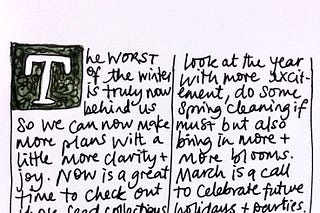 The WORST
of the winter
is truly now
behind us
So we can now make
more plans with a
little more clarity +
joy. Now is a great
time to check out
seed collections
look at the year
with more excit-
ement, do some
Spring cleaning if
must but also
bring in more +
more blooms.
March is a call
to celebrate future
holidays + parties.